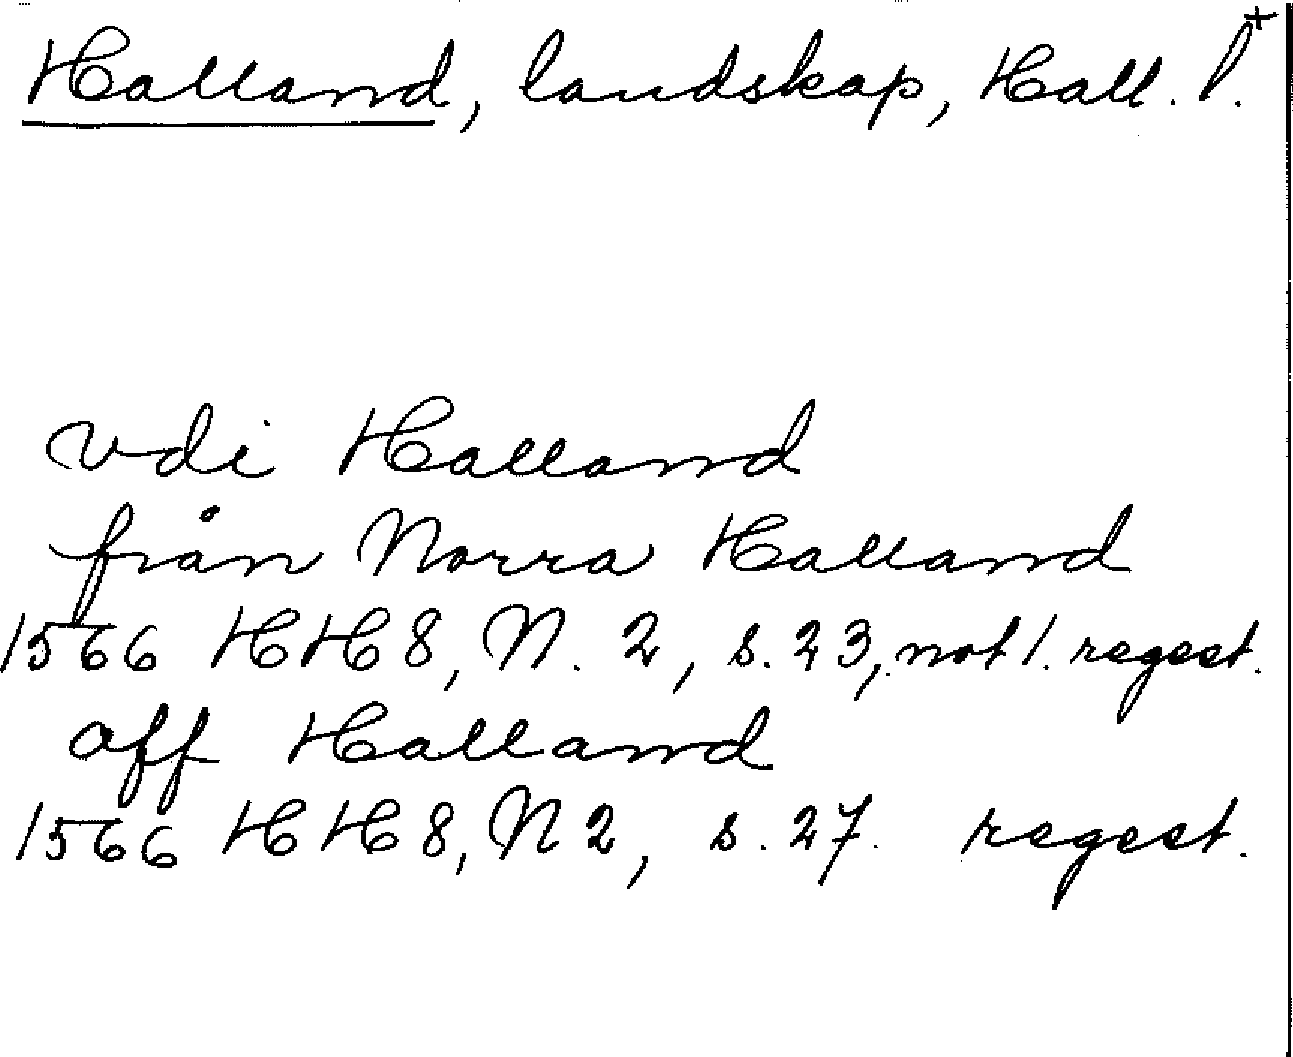 Halland, landskap, Hall. l.+
vdi Halland
från Norra Halland
1566 HH8, N. 2, s. 23, not 1. regest.
aff Halland
1566 HH8, N 2, s. 27. regest.